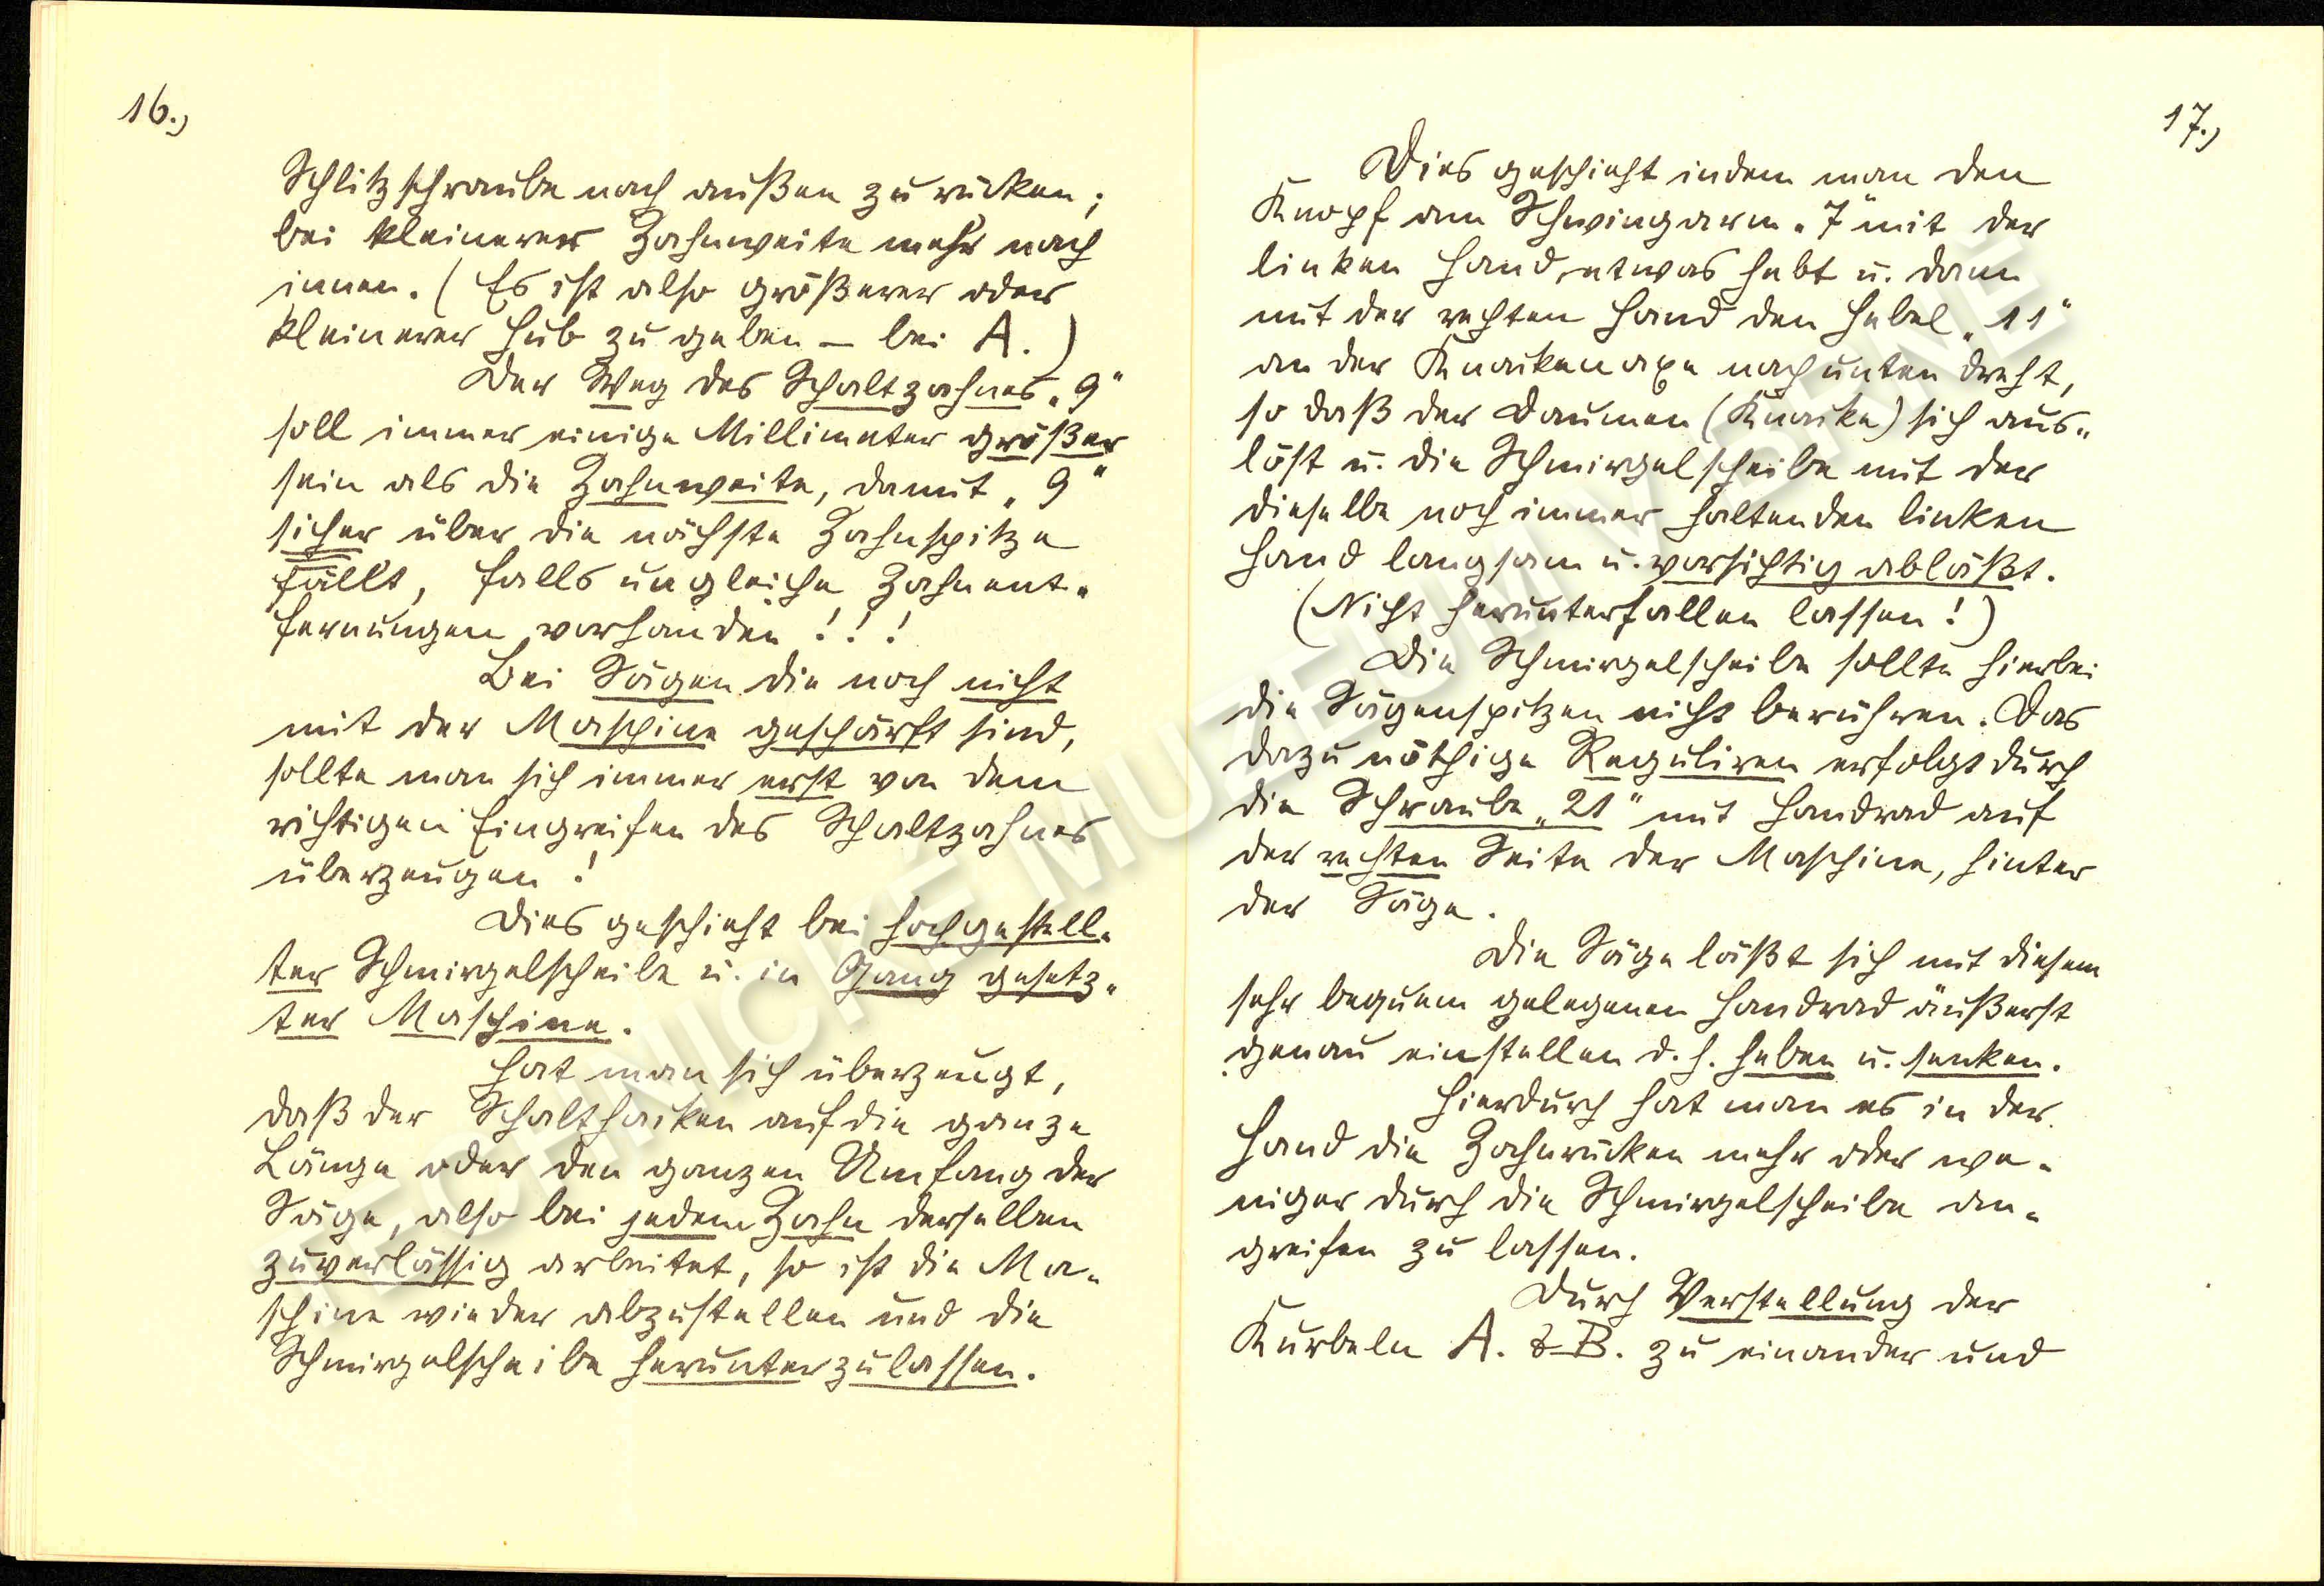 16.)
Schlitzschraube nach außen zu rücken;
bei kleinerer Zahnweite mehr nach
innen. (Es ist also größerer oder
kleinerer Hub zu geben — bei A.)
Der Weg des Schaltzahnes „9“
soll immer einige Millimeter größer
sein als die Zahnweite, damit „9“
sicher über die nächste Zahnspitze
fällt, falls ungleiche Zahnent-
fernungen vorhanden!!!
Bei Sägen die noch nicht
mit der Maschine geschärft sind,
sollte man sich immer erst von dem
richtigen Eingreifen des Schaltzahnes
überzeugen!
Dies geschieht bei hochgestell-
ter Schmirgelscheibe u. in Gang gesetz-
ter Maschine.
Hat man sich überzeugt,
daß der Schalthaken auf die ganze
Länge oder den ganzen Umfang der
Säge, also bei jedem Zahn derselben
zuverlässig arbeitet, so ist die Ma-
schine wieder abzustellen und die
Schmirgelscheibe herunterzulassen.
17.)
Dies geschieht indem man den
Knopf am Schwingarm „7“ mit der
linken Hand etwas hebt u. dann
mit der rechten Hand den Hebel „11“
an der Knackenaxe nach unten dreht,
so daß der Daumen (Knacke) sich aus-
löst u. die Schmirgelscheibe mit der
dieselbe noch immer haltenden linken
Hand langsam u. vorsichtig abläßt.
(Nicht herunterfallen lassen!)
Die Schmirgelscheibe sollte hierbei
die Sägenspitzen nicht berühren. Das
dazu nöthige Reguliren erfolgt durch
die Schraube „21“ mit Handrad auf
der rechten Seite der Maschine, hinter
der Säge.
Die Säge läßt sich mit diesem
sehr bequem gelegenen Handrad äußerst
genau einstellen d. h. heben u. senken.
Hierdurch hat man es in der
Hand die Zahnrücken mehr oder we-
niger durch die Schmirgelscheibe an-
greifen zu lassen.
Durch Verstellung der
Kurbeln A. & B. zu einander und
TECHNICKÉ MUZEUM V BRNĚ